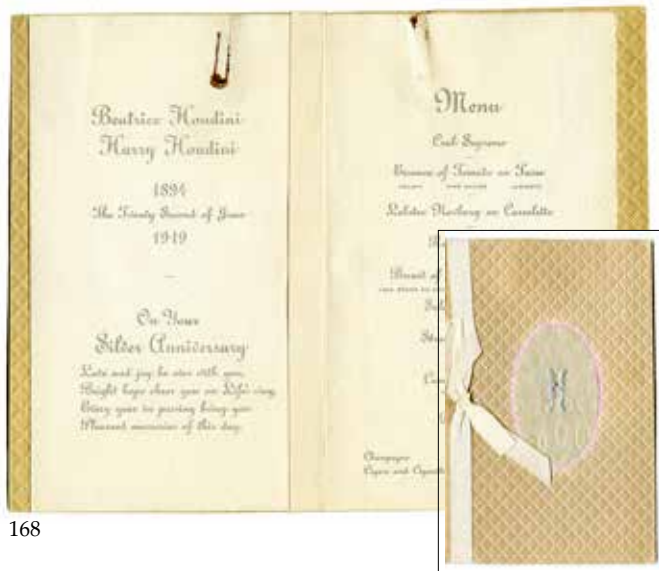 Beatrice Houdini
Harry Houdini
1894
The Twenty Second of June
1919
On Your
Silver Anniversary
Love and joy be ever with you,
Bright hope cheer you on Life's way,
Every year in passing bring you
Pleasant memories of this day.
Menu
Crab Supreme
Essence of Tomato en Tasse
Lobster Newburg en Casselette
Breast of
Champagne
Cigars and Cigarett
H
168